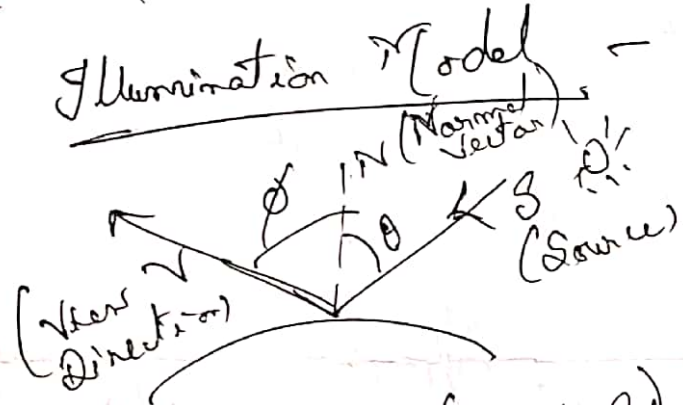 Illumination Model –
N (Normal
Vector)
φ
θ
S
(Source)
V
(View
Direction)